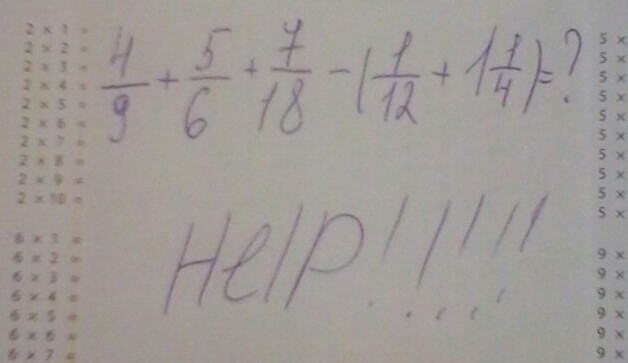 4/9 + 5/6 + 7/18 - (1/12 + 1 1/4) = ?
Help!!!!!
2 x 1 =
2 x 2 =
2 x 3 =
2 x 4 =
2 x 5 =
2 x 6 =
2 x 7 =
2 x 8 =
2 x 9 =
2 x 10 =
6 x 1 =
6 x 2 =
6 x 3 =
6 x 4 =
6 x 5 =
6 x 6 =
6 x 7 =
5 x
5 x
5 x
5 x
5 x
5 x
5 x
5 x
5 x
5 x
9 x
9 x
9 x
9 x
9 x
9 x